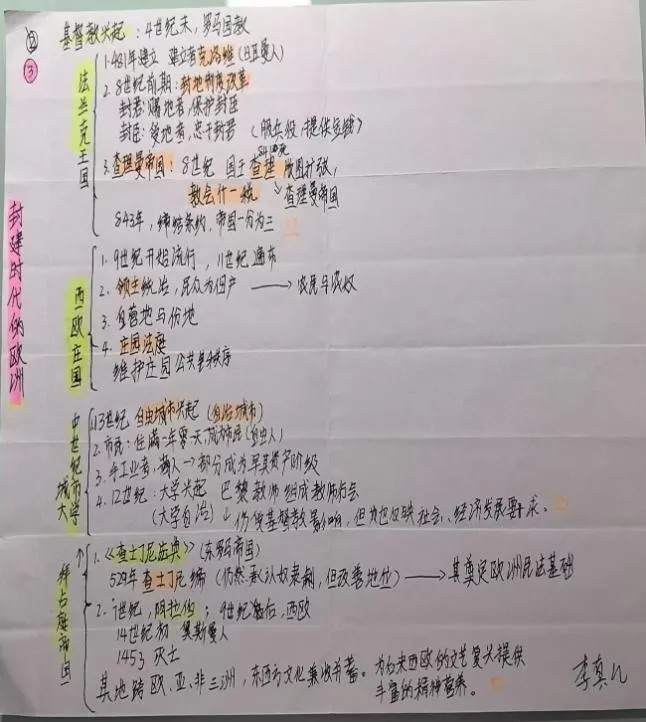 ③
基督教兴起：4世纪末，罗马国教
封建时代的欧洲
法兰克王国
1.481年建立 建立者克洛维(日耳曼人)
2.8世纪前期：封地制度改革
封君：赐地者，保护封臣
封臣：受地者，忠于封君 (服兵役，提供金钱)
3.查理曼帝国：8世纪 国王查理 版图扩张，
教会什一税 → 查理曼帝国
843年，缔结条约，帝国一分为三
西欧庄园
1. 9世纪开始流行，11世纪遍布
2. 领主统治，民众为佃户 → 农民与农奴
3. 自营地与份地
4. 庄园法庭
维护庄园公共秩序
中世纪城市大学
1.13世纪 自由城市兴起 (自治城市)
2.市民：住满一年零一天，成为市民 (自由人)
3.手工业者，商人→部分成为早期资产阶级
4.12世纪：大学兴起 巴黎教师组成教师行会
(大学自治) ↓仍受基督教影响，但也反映社会、经济发展要求。
拜占庭帝国
1.《查士丁尼法典》(东罗马帝国)
529年查士丁尼编 (仍然承认奴隶制，但改善地位) → 其奠定欧洲民法基础
2.7世纪，阿拉伯；9世纪后，西欧
14世纪初 奥斯曼人
1453 灭亡
其地跨欧、亚、非三洲，东西方文化兼收并蓄。为后来西欧的文艺复兴提供
丰富的精神营养。